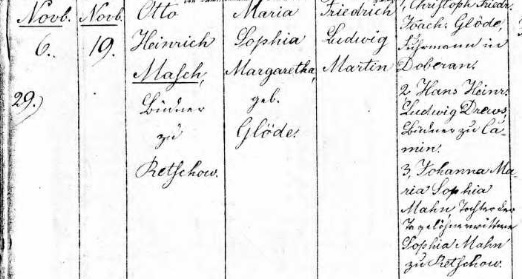 Novb. Novb. Otto Maria Friedrich 1, Christoph Friedr.
6. 19. Heinrich Sophia Ludwig Joach: Glöde,
Masch, Margaretha, Martin
Doberan.
29.) Büdner geb. 2 Hans Heinr.
zu Glöde. Ludwig Drews,
Retschow. Büdner zu Ca-
min.
3, Johanna Ma-
ria Sophia
Mahn, Tochter der
Tagelöhnerwittwe
Sophia Mahn
zu Retschow.